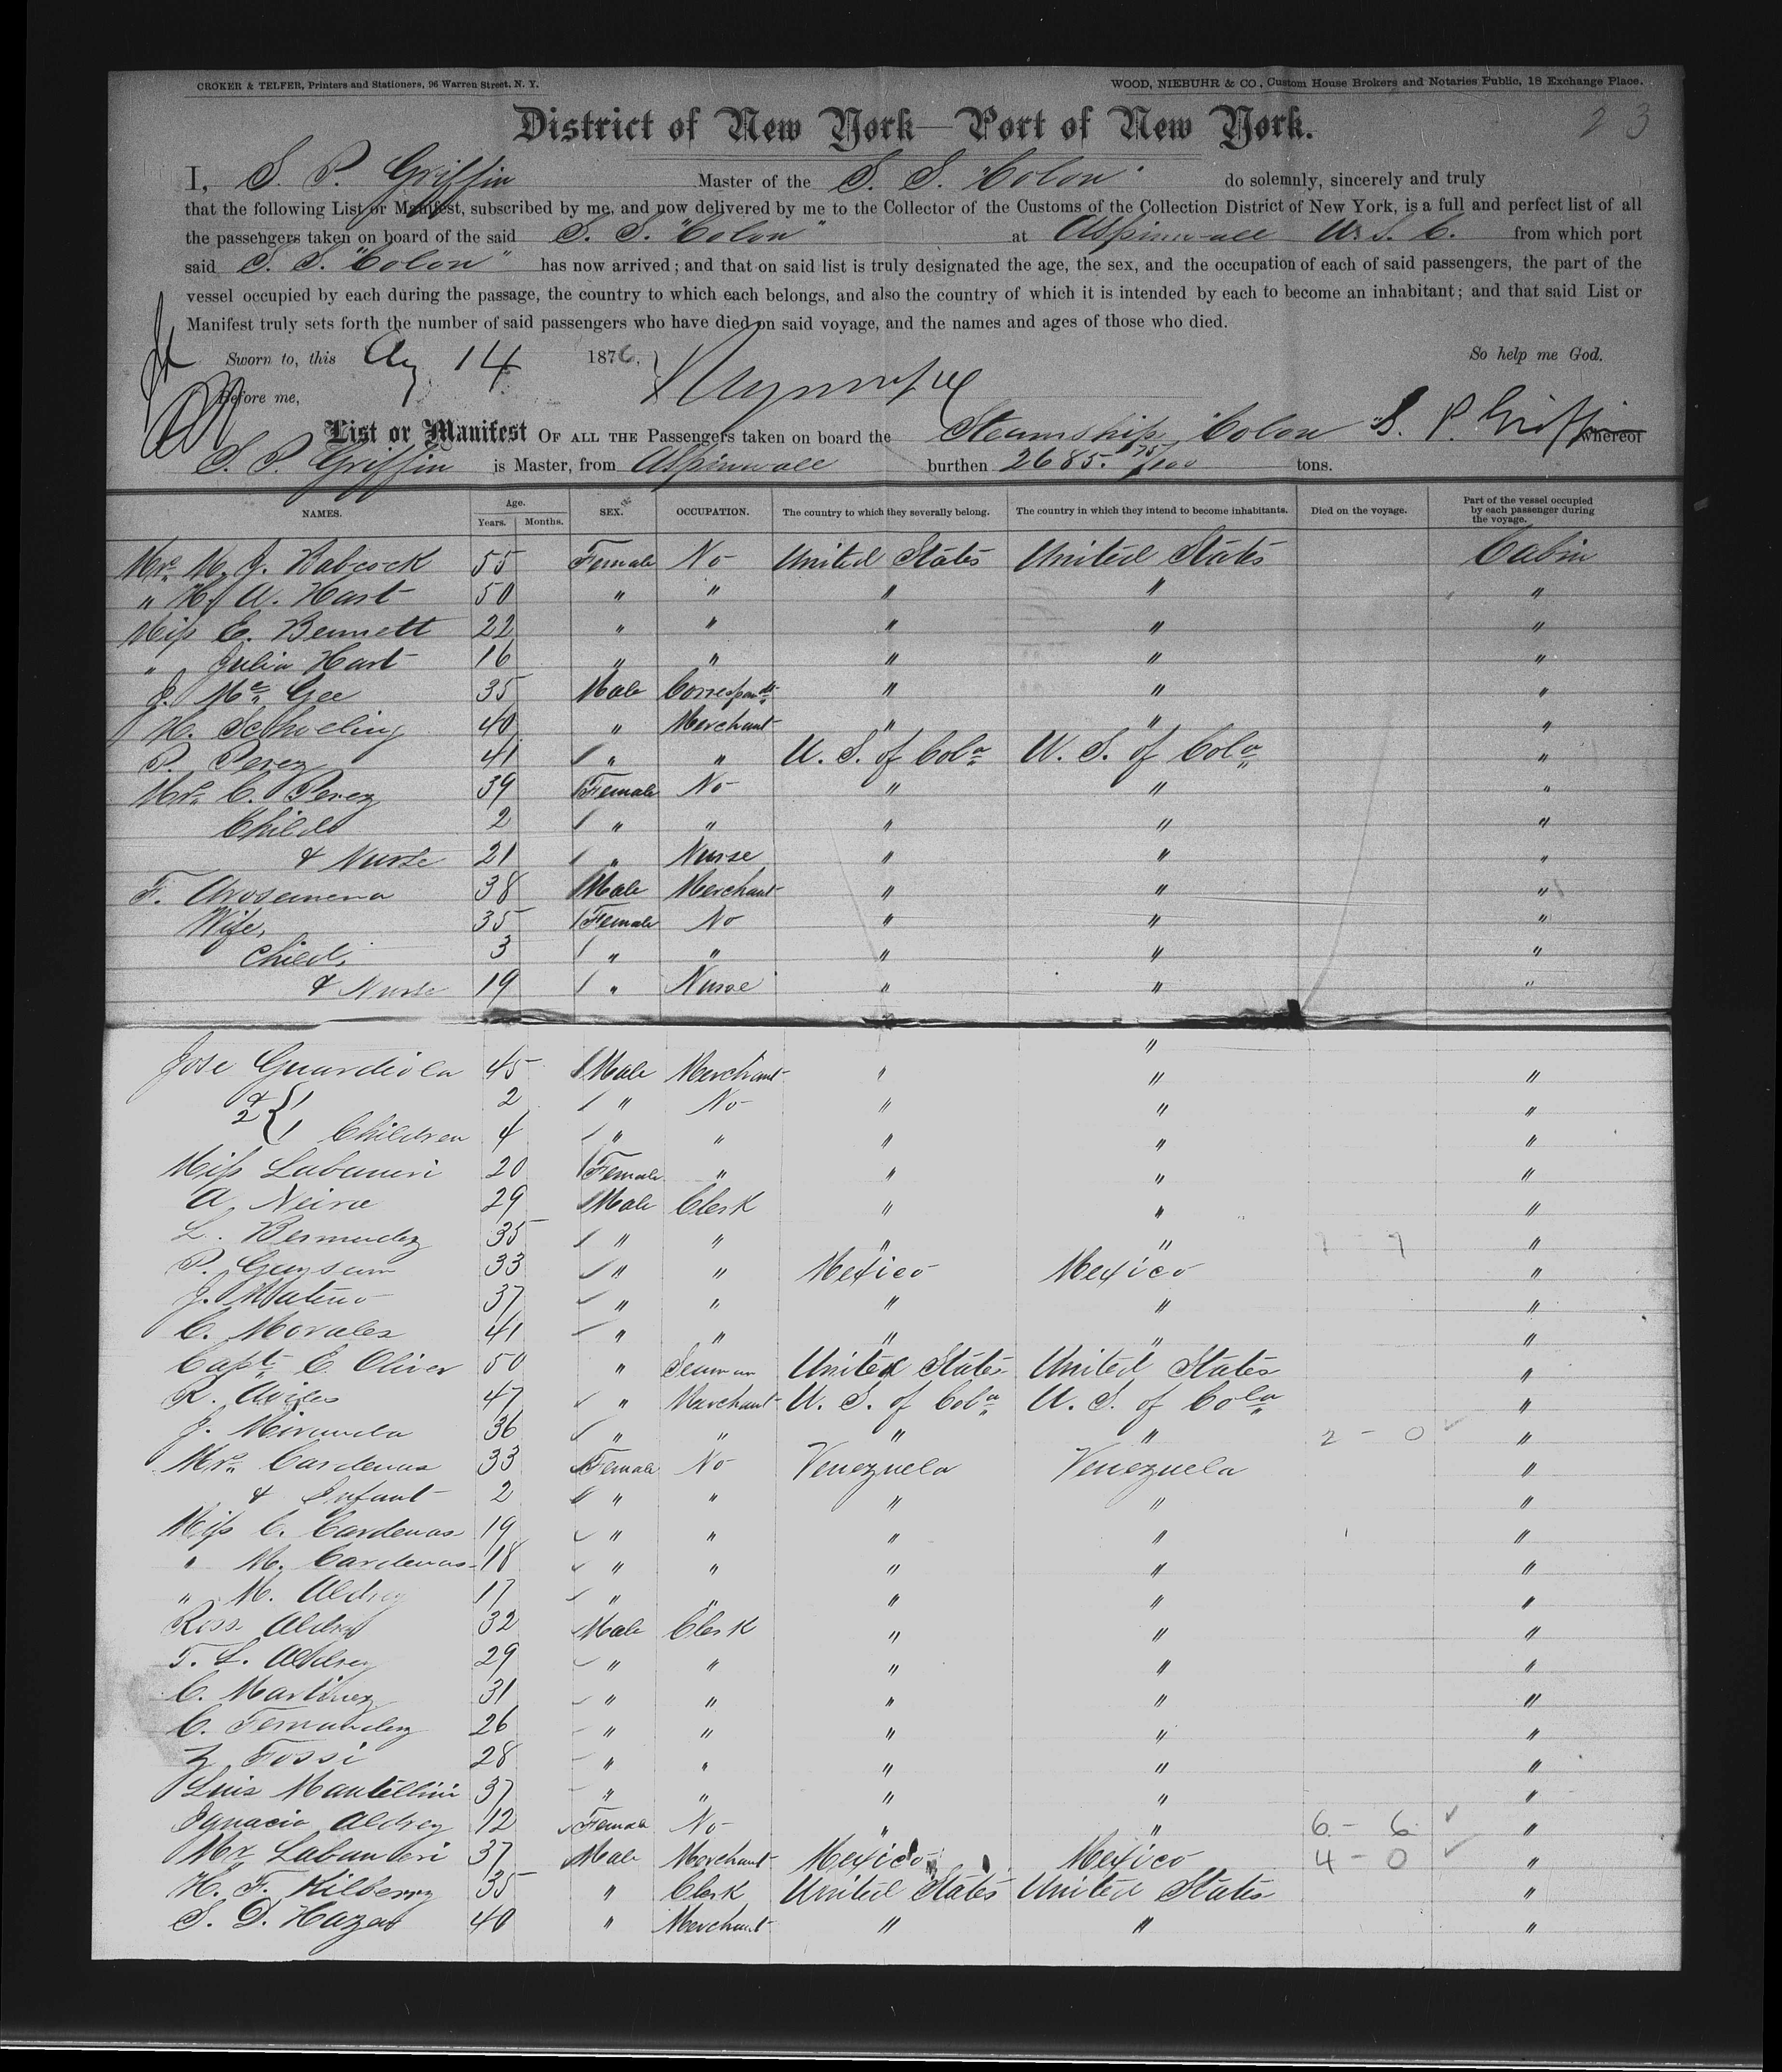 CROKER & TELFER, Printers and Stationers, 96 Warren Street, N. Y. WOOD, NIEBUHR & CO., Custom House Brokers and Notaries Public, 18 Exchange Place.
District of New York—Port of New York. 23
I, S. P. Griffin Master of the S. S. "Colon" do solemnly, sincerely and truly
that the following List or Manifest, subscribed by me, and now delivered by me to the Collector of the Customs of the Collection District of New York, is a full and perfect list of all
the passengers taken on board of the said S. S. "Colon" at Aspinwall U. S. C. from which port
said S. S. "Colon" has now arrived; and that on said list is truly designated the age, the sex, and the occupation of each of said passengers, the part of the
vessel occupied by each during the passage, the country to which each belongs, and also the country of which it is intended by each to become an inhabitant; and that said List or
Manifest truly sets forth the number of said passengers who have died on said voyage, and the names and ages of those who died.
Sworn to, this Aug 14 1876. So help me God.
Before me,
List or Manifest OF ALL THE Passengers taken on board the Steamship Colon S. P. Griffin whereof
S. P. Griffin is Master, from Aspinwall burthen 2685. 75/100 tons.
NAMES. Age. Years. Months. SEX. OCCUPATION. The country to which they severally belong. The country in which they intend to become inhabitants. Died on the voyage. Part of the vessel occupied by each passenger during the voyage.
Mrs. M. J. Babcock 55 Female No United States United States Cabin
" H. A. Hart 50 " " " " "
Miss E. Bennett 22 " " " " "
" Julia Hart 16 " " " " "
J. Mc. Gee 35 Male Correspondt " " "
H. Schoeling 40 " Merchant " " "
P. Perez 41 " " U. S. of Cola U. S. of Cola "
Mrs. C. Perez 39 Female No " " "
Child 2 " " " " "
& Nurse 21 " Nurse " " "
F. Arosemena 38 Male Merchant " " "
Wife, 35 Female No " " "
Child, 3 " " " " "
& Nurse 19 " Nurse " " "
Jose Guardiola 45 Male Merchant " " "
& 2 { 2 " No " " "
Children 4 " " " " "
Miss Labaneri 20 Female " " " "
A. Neira 29 Male Clerk " " "
L. Bermudez 35 " " " " "
P. Guysum 33 " " Mexico Mexico "
J. Mateno 37 " " " " "
C. Morales 41 " " " " "
Capt. E Oliver 50 " Seaman United States United States "
R. Aviles 47 " Merchant U. S. of Cola U. S. of Cola "
J. Miranda 36 " " " " 2 - 0 "
Mrs. Cardenas 33 Female No Venezuela Venezuela "
& Infant 2 " " " " "
Miss C. Cardenas 19 " " " " "
" M. Cardenas 18 " " " " "
" M. Aldrey 17 " " " " "
Ross Aldrey 32 Male Clerk " " "
T. L. Aldrey 29 " " " " "
C. Martinez 31 " " " " "
C. Fernandez 26 " " " " "
Fossi 28 " " " " "
Luis Mantellini 37 " " " " "
Ignacia Aldrey 12 Female No " " 6 - 6 "
Mr. Labanteri 37 Male Merchant Mexico Mexico 4 - 0 "
H. F. Kilberry 35 " Clerk United States United States "
S. D. Hazard 40 " Merchant " " "